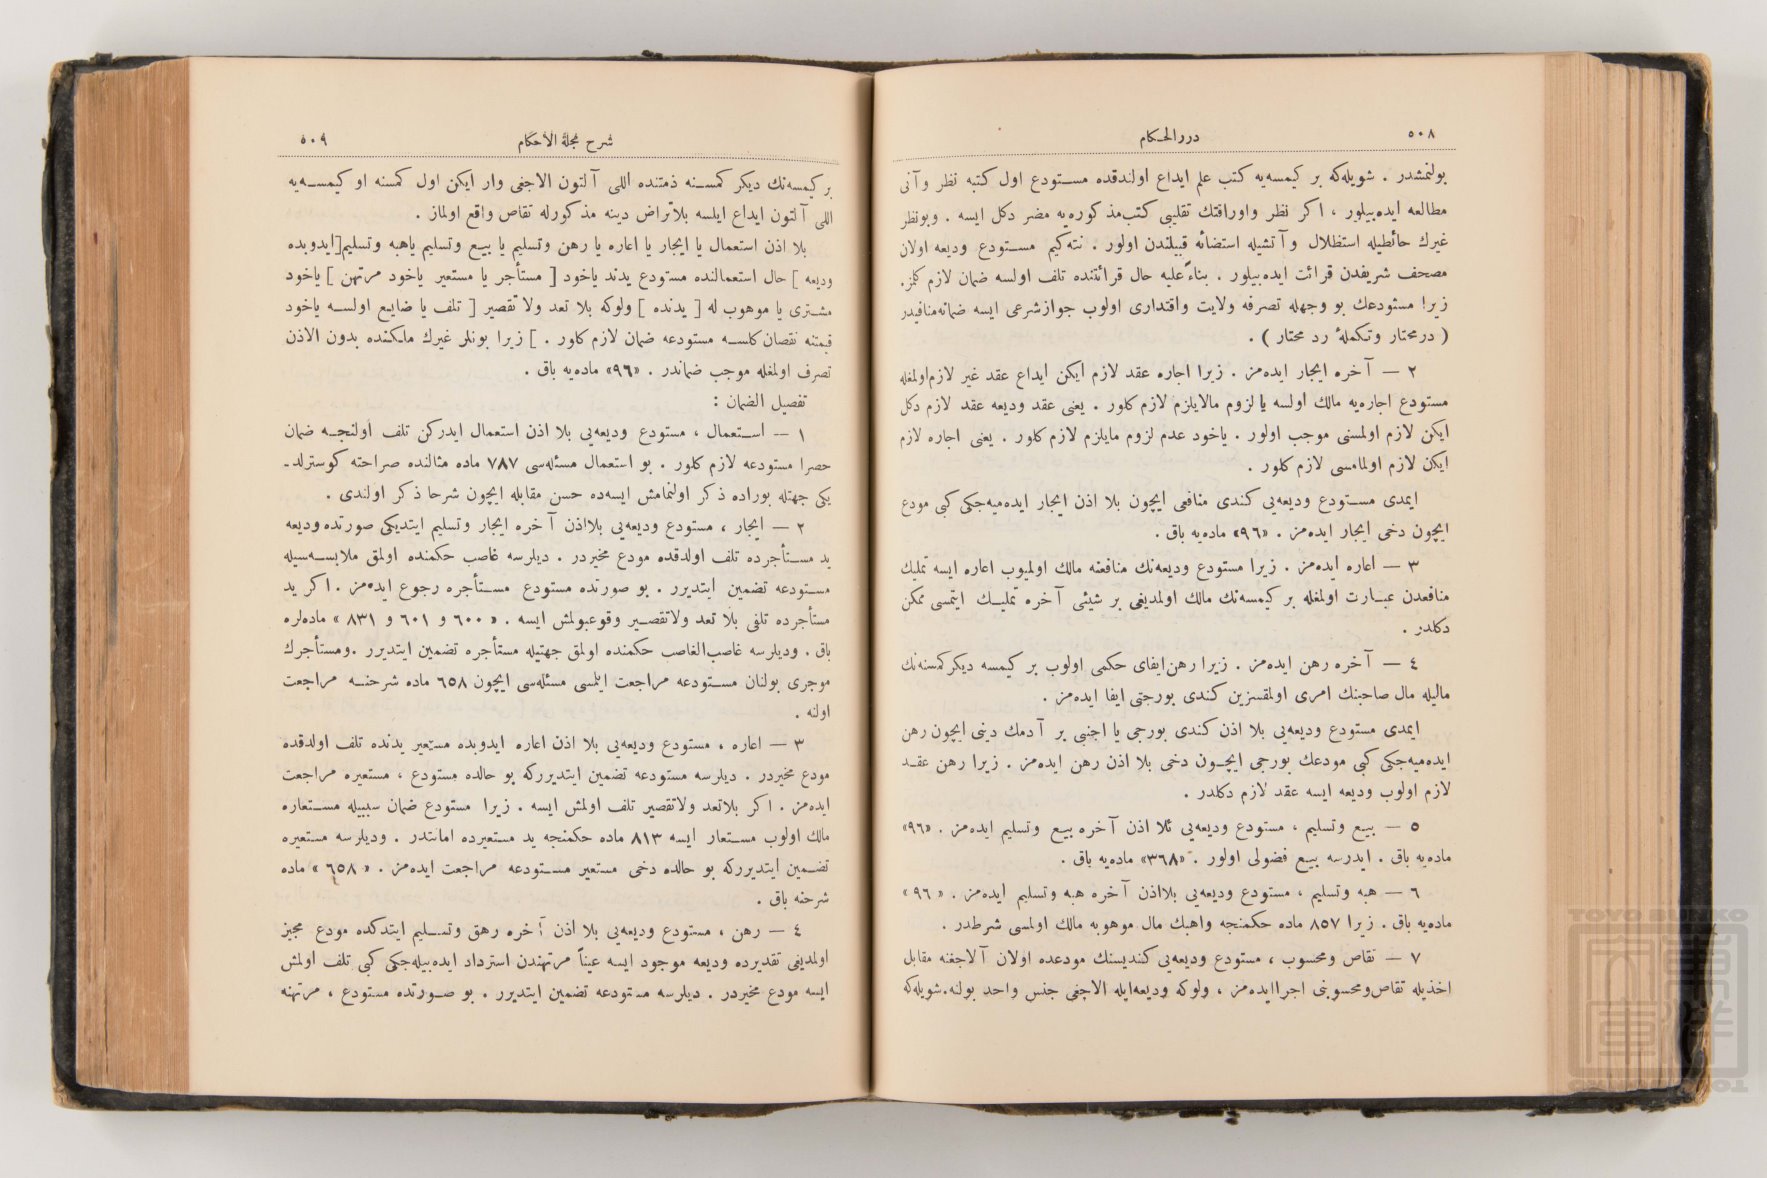 ٥٠٨
درر الحكام
بولنمشدر . شويله‌كه بر كيمسه‌يه كتب علم ايداع اولندقده مستودع اول كتبه نظر وآنى
مطالعه ايده‌بيلور ، اكر نظر واوراقنك تقليبى كتب مذكوره‌يه مضر دكل ايسه . وبونظر
غيرك حائطيله استظلال وآتشيله استضائه قبيلندن اولور . نته‌كيم مستودع وديعه اولان
مصحف شريفدن قرائت ايده‌بيلور . بناءً عليه حال قرائتنده تلف اولسه ضمان لازم كلمز.
زيرا مستودعك بو وجهله تصرفه ولايت واقتدارى اولوب جواز شرعى ايسه ضمانه‌منافيدر
( درمختار وتكملهٔ رد محتار ) .
٢ — آخره ايجار ايده‌مز . زيرا اجاره عقد لازم ايكن ايداع عقد غير لازم‌اولمغله
مستودع اجاره‌يه مالك اولسه يا لزوم مالايلزم لازم كلور . يعنى عقد وديعه عقد لازم دكل
ايكن لازم اولمسنى موجب اولور . ياخود عدم لزوم مايلزم لازم كلور . يعنى اجاره لازم
ايكن لازم اولمامسى لازم كلور .
ايمدى مستودع وديعه‌يى كندى منافعى ايچون بلا اذن ايجار ايده‌ميه‌جكى كبى مودع
ايچون دخى ايجار ايده‌مز . «٩٦» ماده‌يه باق .
٣ — اعاره ايده‌مز . زيرا مستودع وديعه‌نك منافعنه مالك اولميوب اعاره ايسه تمليك
منافعدن عبارت اولمغله بر كيمسه‌نك مالك اولمديغى بر شيئى آخره تمليك ايتمسى ممكن
دكلدر .
٤ — آخره رهن ايده‌مز . زيرا رهن‌ايفاى حكمى اولوب بر كيمسه ديكر كمسنه‌نك
ماليله مال صاحبنك امرى اولمقسزين كندى بورجنى ايفا ايده‌مز .
ايمدى مستودع وديعه‌يى بلا اذن كندى بورجى يا اجنبى بر آدمك دينى ايچون رهن
ايده‌ميه‌جكى كبى مودعك بورجى ايچون دخى بلا اذن رهن ايده‌مز . زيرا رهن عقد
لازم اولوب وديعه ايسه عقد لازم دكلدر .
٥ — بيع وتسليم ، مستودع وديعه‌يى بلا اذن آخره بيع وتسليم ايده‌مز . «٩٦»
ماده‌يه باق . ايدرسه بيع فضولى اولور . «٣٦٨» ماده‌يه باق .
٦ — هبه وتسليم ، مستودع وديعه‌يى بلااذن آخره هبه وتسليم ايده‌مز . « ٩٦ »
ماده‌يه باق . زيرا ٨٥٧ ماده حكمنجه واهبك مال موهوبه مالك اولمسى شرطدر .
٧ — تقاص ومحسوب ، مستودع وديعه‌يى كنديسنك مودعده اولان آلاجغنه مقابل
اخذيله تقاص‌ومحسوبنى اجراايده‌مز ، ولوكه وديعه‌ايله الاجغى جنس واحد بولنه.شويله‌كه
شرح مجلة الأحكام
٥٠٩
بر كيمسه‌نك ديكر كمسنه ذمتنده اللى آلتون الاجغى وار ايكن اول كمسنه او كيمسه‌يه
اللى آلتون ايداع ايلسه بلاتراض دينه مذكورله تقاص واقع اولماز .
بلا اذن استعمال يا ايجار يا اعاره يا رهن وتسليم يا بيع وتسليم ياهبه وتسليم[ايدوبده
وديعه ] حال استعمالنده مستودع يدند ياخود [ مستأجر يا مستعير ياخود مرتهن ] ياخود
مشترى يا موهوب له [ يدنده ] ولوكه بلا تعد ولا تقصير [ تلف يا ضايع اولسه ياخود
قيمتنه نقصان كلسه مستودعه ضمان لازم كلور . ] زيرا بونلر غيرك ملكنده بدون الاذن
تصرف اولمغله موجب ضماندر . «٩٦» ماده‌يه باق .
تفصيل الضمان :
١ — استعمال ، مستودع وديعه‌يى بلا اذن استعمال ايدركن تلف اولنجه ضمان
حصرا مستودعه لازم كلور . بو استعمال مسئله‌سى ٧٨٧ ماده مثالنده صراحته كوسترلد-
يكى جهتله بوراده ذكر اولنمامش ايسه‌ده حسن مقابله ايچون شرحا ذكر اولندى .
٢ — ايجار ، مستودع وديعه‌يى بلااذن آخره ايجار وتسليم ايتديكى صورتده وديعه
يد مستأجرده تلف اولدقده مودع مخيردر . ديلرسه غاصب حكمنده اولمق ملابسه‌سيله
مستودعه تضمين ايتديرر . بو صورتده مستودع مستأجره رجوع ايده‌مز . اكر يد
مستأجرده تلفى بلا تعد ولاتقصير وقوعبولمش ايسه . « ٦٠٠ و ٦٠١ و ٨٣١ » ماده‌لره
باق . وديلرسه غاصب‌الغاصب حكمنده اولمق جهتيله مستأجره تضمين ايتديرر .ومستأجرك
موجرى بولنان مستودعه مراجعت ايلمسى مسئله‌سى ايچون ٦٥٨ ماده شرحنه مراجعت
اولنه .
٣ — اعاره ، مستودع وديعه‌يى بلا اذن اعاره ايدوبده مستعير يدنده تلف اولدقده
مودع مخيردر . ديلرسه مستودعه تضمين ايتديرركه بو حالده مستودع ، مستعيره مراجعت
ايده‌مز . اكر بلاتعد ولاتقصير تلف اولمش ايسه . زيرا مستودع ضمان سببيله مستعاره
مالك اولوب مستعار ايسه ٨١٣ ماده حكمنجه يد مستعيرده امانتدر . وديلرسه مستعيره
تضمين ايتديرركه بو حالده دخى مستعير مستودعه مراجعت ايده‌مز . « ٦٥٨ » ماده
شرحنه باق .
٤ — رهن ، مستودع وديعه‌يى بلا اذن آخره رهن وتسليم ايتدكده مودع مجيز
اولمديغى تقديرده وديعه موجود ايسه عيناً مرتهندن استرداد ايده‌بيله‌جكى كبى تلف اولمش
ايسه مودع مخيردر . ديلرسه مستودعه تضمين ايتديرر . بو صورتده مستودع ، مرتهنه
TOYO BUNKO